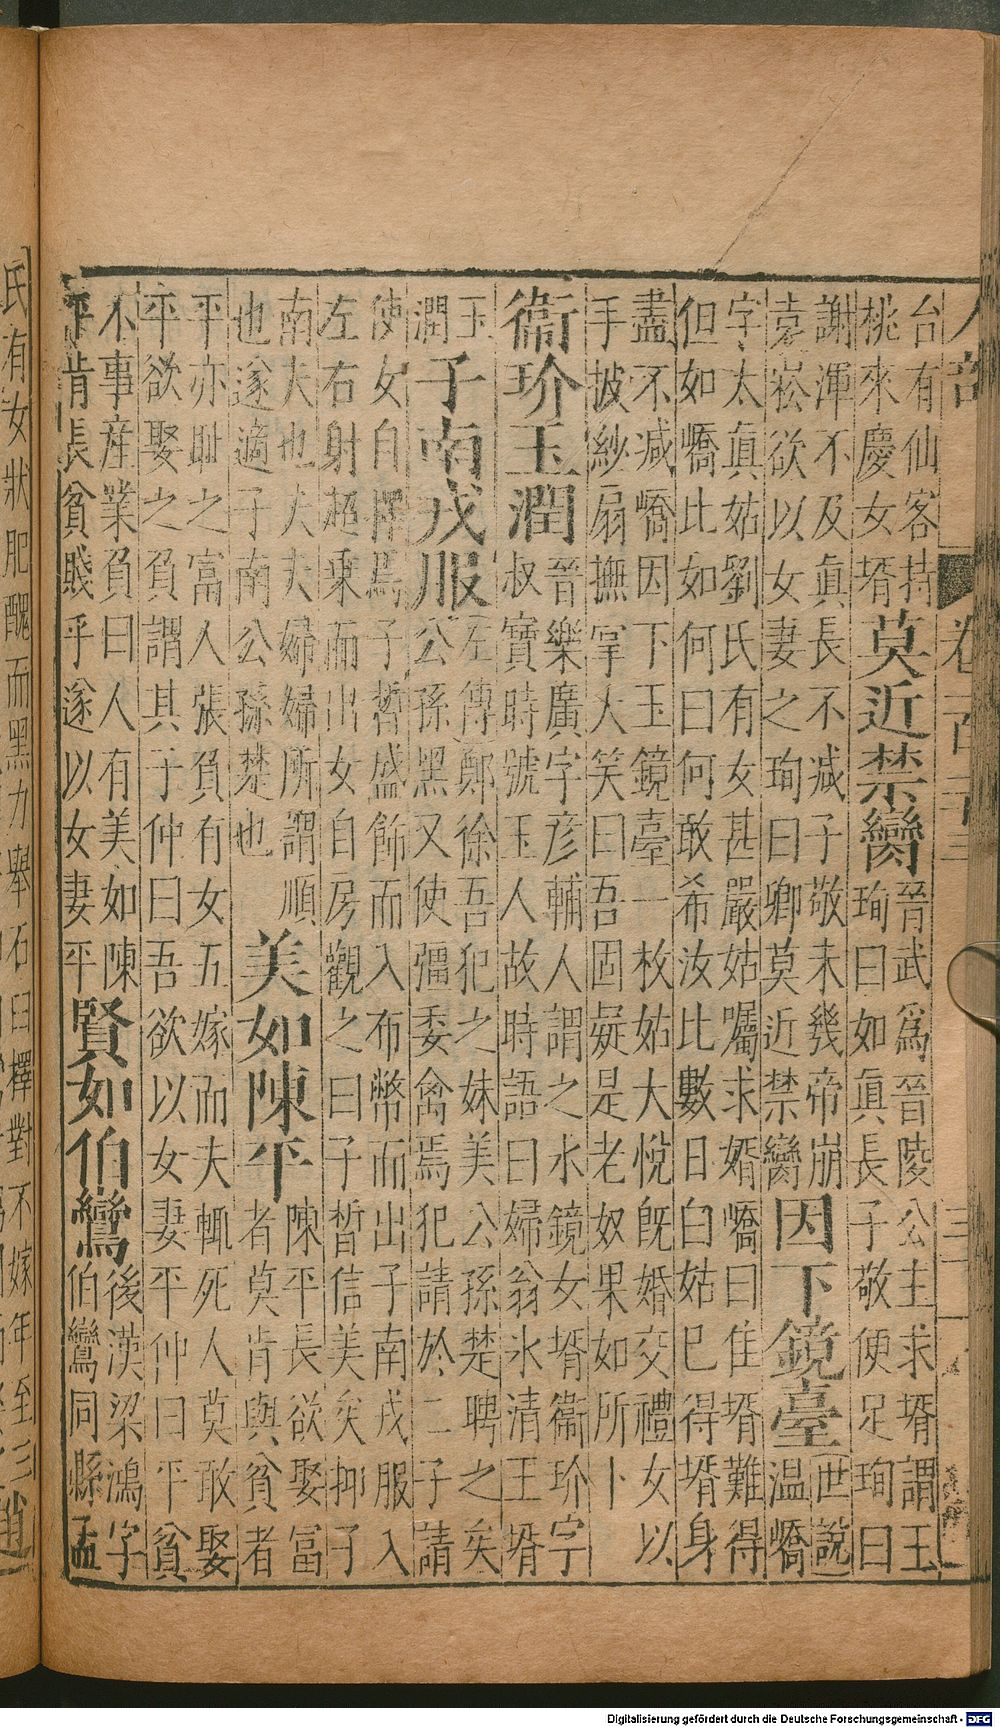 人部
台有仙客持
桃來慶女壻
莫近禁臠
晉武爲晉陵公主求壻謂王
珣曰如眞長子敬便足珣曰
謝渾不及眞長不減子敬未幾帝崩
袁崧欲以女妻之珣曰卿莫近禁臠
因下鏡臺
世說
溫嶠
字太眞姑劉氏有女甚嚴姑囑求婿嶠曰佳壻難得
但如嶠比如何曰何敢希汝比數日白姑已得壻身
盡不减嶠因下玉鏡臺一枚姑大悅旣婚交禮女以
手披紗扇撫掌大笑曰吾固疑是老奴果如所卜
衞玠玉潤
晉樂廣字彥輔人謂之水鏡女壻衞玠字
叔寶時號玉人故時語曰婦翁氷清王壻
玉
潤
子南戎服
左傳鄭徐吾犯之妹美公孫楚聘之矣
公孫黑又使彊委禽焉犯請於二子請
使女自擇焉子晳盛飾而入布幣而出子南戎服入
左右射超乗而出女自房觀之曰子晳信美矣抑子
南夫也夫夫婦婦所謂順
也遂適子南公孫楚也
美如陳平
陳平長欲娶富
者莫肯與貧者
平亦耻之富人張負有女五嫁而夫輒死人莫敢娶
平欲娶之負謂其子仲曰吾欲以女妻平仲曰平貧
不事產業負曰人有美如陳
平肯長貧賤乎遂以女妻平
賢如伯鸞
後漢梁鴻字
伯鸞同縣孟
氏有女狀肥醜而黑力舉石臼擇對不嫁年至三
趙
Digitalisierung gefördert durch die Deutsche Forschungsgemeinschaft - DFG